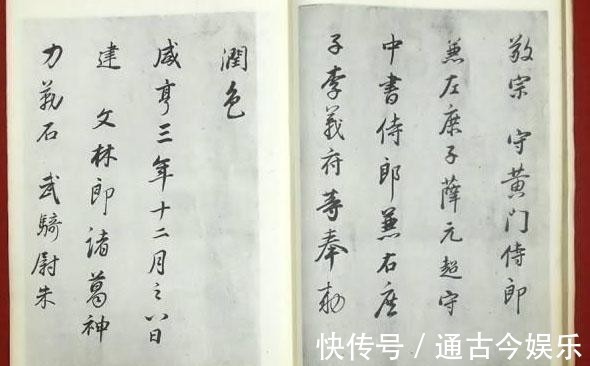 敬宗 守黄门侍郎
兼左庶子薛元超守
中書侍郎兼右庶
子李義府等奉勅
潤色
咸亨三年十二月八日
建 文林郎諸葛神
力勒石 武騎尉朱
快传号/通古今娱乐